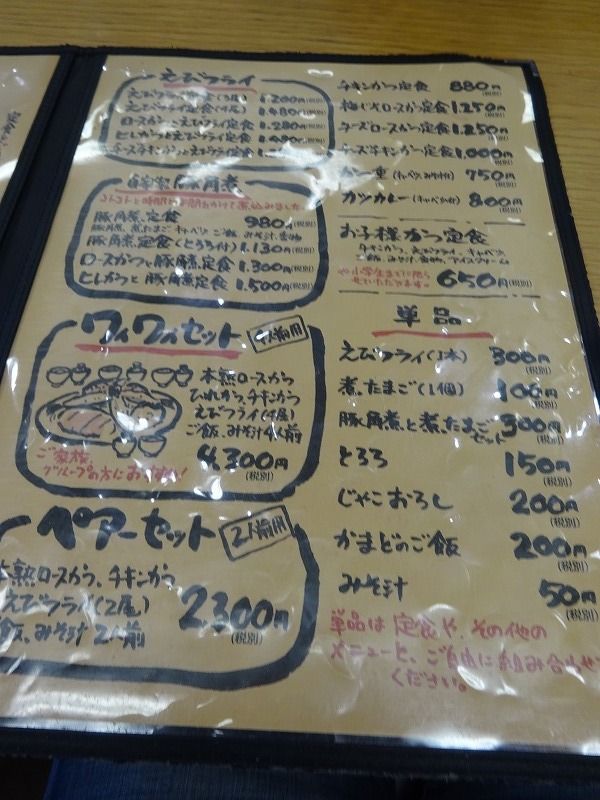 えびフライ
えびフライ定食(3尾) 1.200円(税別)
えびフライ定食(4尾) 1.480円(税別)
ロースかつとえびフライ定食 1.280円(税別)
ヒレかつとえびフライ定食 1.480円(税別)
チーズチキンかつとえびフライ定食
自家製 豚角煮
豚角煮定食 980円(税別)
豚角煮、煮たまご キャベツ ご飯 みそ汁、香物
豚角煮定食(とろろ付) 1.130円(税別)
ロースかつと豚角煮定食 1.300円(税別)
ヒレかつと豚角煮定食 1,500円(税別)
ワイワイセット 4人前用
本熟ロースかつ
ひれかつ、チキンかつ
えびフライ(4尾)
ご飯、みそ汁 4人前
ご家族、
グループの方におすすめ!
4,300円
(税別)
ペアーセット 2人前用
本熟ロースかつ、チキンかつ
えびフライ(2尾)
ご飯、みそ汁 2人前
2,300円
(税別)
チキンかつ定食 880円(税別)
梅しそロースかつ定食 1,250円(税別)
チーズロースかつ定食 1,250円(税別)
チーズチキンかつ定食 1,000円(税別)
かつ重(キャベツ、みそ汁付) 750円(税別)
カツカレー(キャベツ付) 800円(税別)
お子様かつ定食
チキンかつ、えびフライ、キャベツ
ご飯、みそ汁、香物、アイスクリーム
小学生までに限らせていただきます。
650円(税別)
単品
えびフライ(1本) 300円(税別)
煮たまご(1個) 100円(税別)
豚角煮と煮たまごセット 300円(税別)
とろろ 150円(税別)
じゃこおろし 200円(税別)
かまどのご飯 200円(税別)
みそ汁 50円(税別)
単品は定食や、その他の
メニューと、ご自由に組み合わせて
ください。